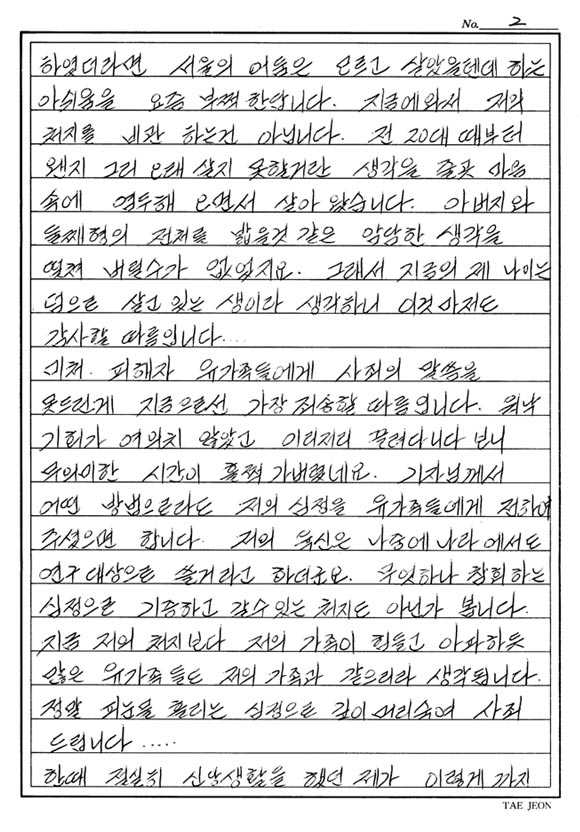 No. 2
하였더라면 서울의 어둠은 모르고 살았을텐데 하는
아쉬움을 요즘 부쩍 한답니다. 지금에와서 저의
처지를 비관 하는건 아닙니다. 전 20대 때부터
왠지 그리 오래 살지 못할거란 생각을 줄곧 마음
속에 염두해 오면서 살아 왔습니다. 아버지와
둘째형의 전처를 밟을것 같은 암담한 생각을
떨쳐 버릴수가 없었지요. 그래서 지금의 제 나이는
덤으로 살고 있는 생이라 생각하니 이것 마저도
감사할 따름입니다....
미처. 피해자 유가족들에게 사죄의 말씀을
못드린게 지금으로선 가장 죄송할 따름입니다. 워낙
기회가 여의치 않았고 이리저리 끌려다니다 보니
무의미한 시간이 훌쩍 가버렸네요. 기자님께서
어떤 방법으로라도 저의 심정을 유가족들에게 전하여
주셨으면 합니다. 저의 육신은 나중에 나라에서도
연구대상으로 쓸거라고 하더군요. 무엇하나 참회하는
심정으로 기증하고 갈수있는 처지도 아닌가 봅니다.
지금 저의 처지보다 저의 가족이 힘들고 아파하듯
많은 유가족들도 저의 가족과 같으리라 생각됩니다.
정말 피눈물을 흘리는 심정으로 깊이 머리숙여 사죄
드립니다.....
한때 절실히 신앙생활을 했던 제가 이렇게 까지
TAE JEON